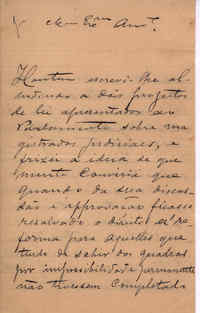 Meu Exmo Amo.
Hontem escrevi-lhe al-
ludindo a dois projetos
de lei apresentados ao
Parlamento sobre ma
gistrados judiciaes, e
frizei a ideia de que
muito conviria que
quando da sua discus-
são e approvação ficasse
resalvado o direito á re-
forma para aquelles que
tendo de sahir dos quadros
por impossibilidade permanente
não tivessem completado